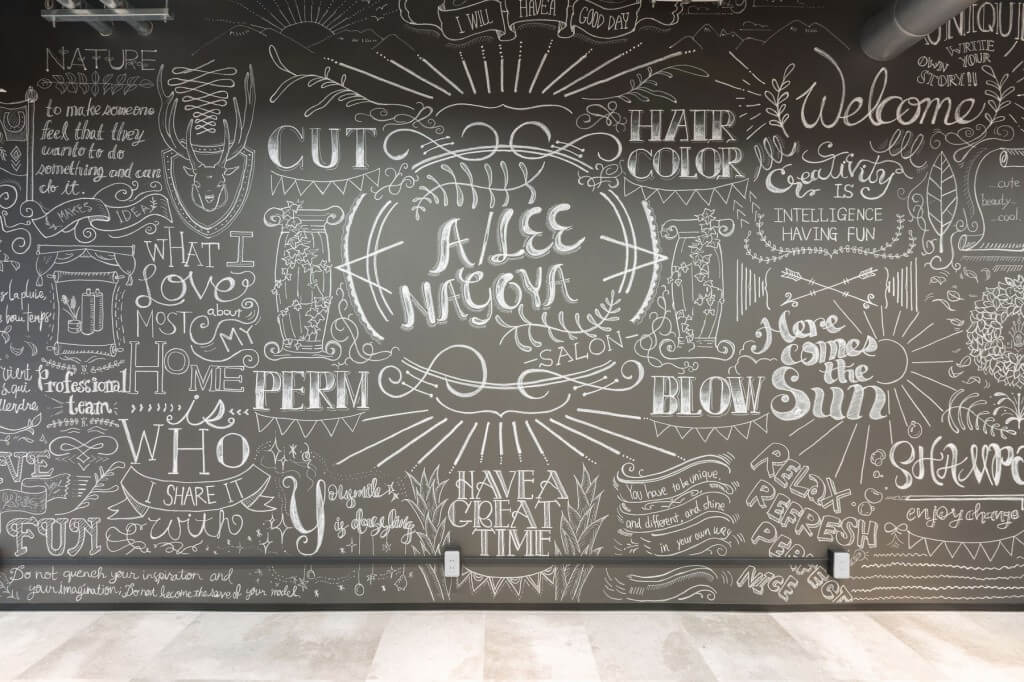 I WILL HAVE A GOOD DAY
UNIQU
WRITE
OWN YOUR
STORY!!!
NATURE
to make someone
feel that they
want to to do
something and can
do it.
MAKES IDEA
CUT
HAIR
COLOR
Welcome
Creativity
IS
INTELLIGENCE
HAVING FUN
...cute
beauty...
...cool
A/LEE
NAGOYA
SALON
WHAT I
Love
MOST about
MY
HOME
is
WHO
I SHARE IT
with
la pluie,
Professional
team
PERM
BLOW
Here
comes
the
Sun
FUN
HAVE A
GREAT
TIME
You have to be unique,
and different, and shine
in your own way
RELAX
REFRESH
NICE
SHAMPO
enjoy change
Do not quench your inspiration and
your imagination; Do not become the slave of your model